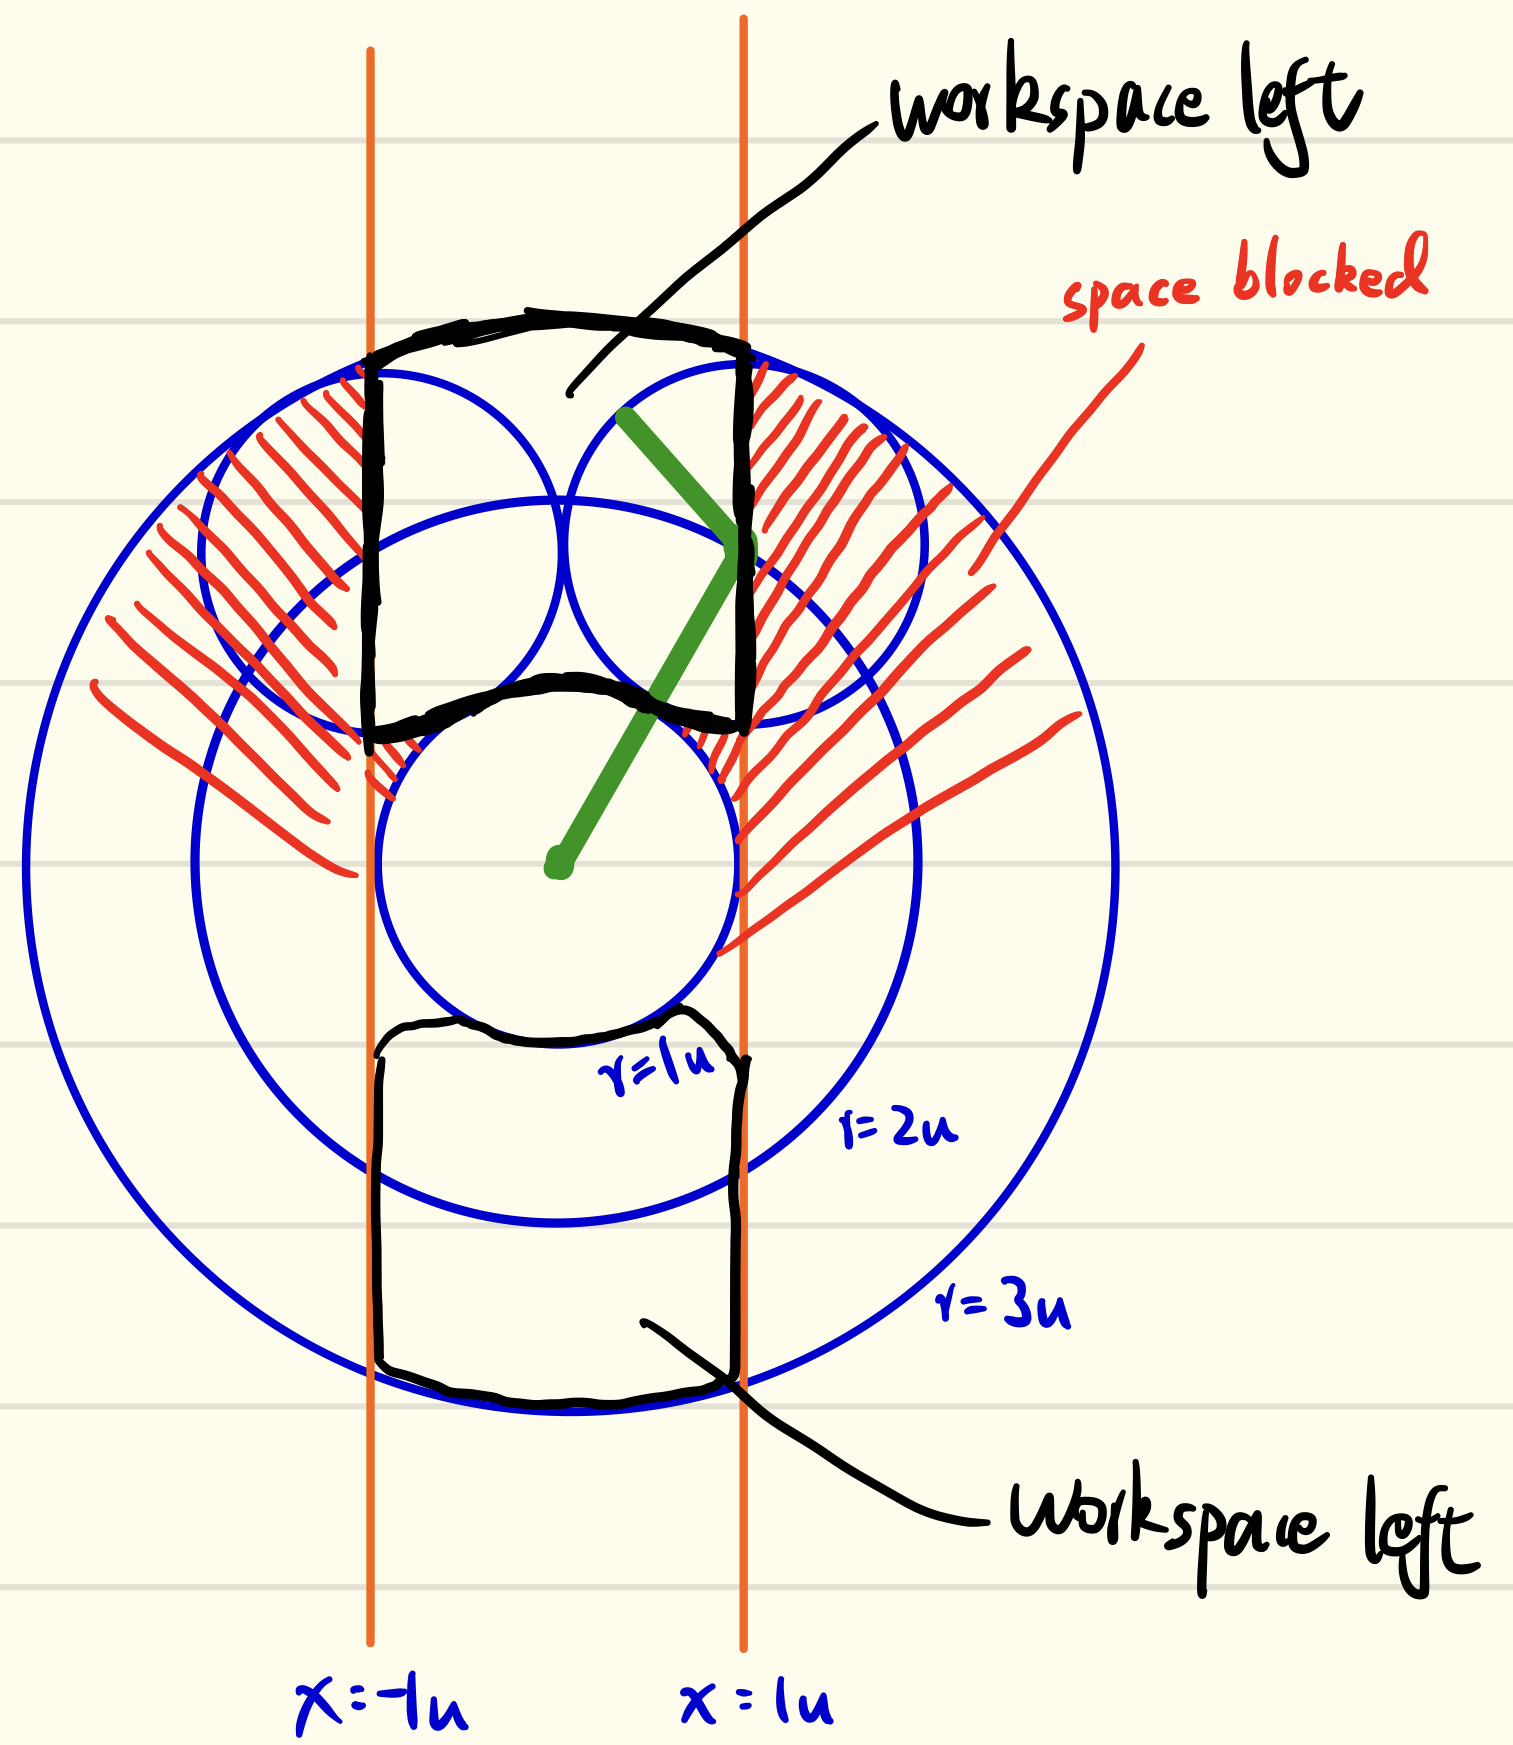 workspace left
space blocked
r=1u
r=2u
r=3u
workspace left
x=-1u
x=1u